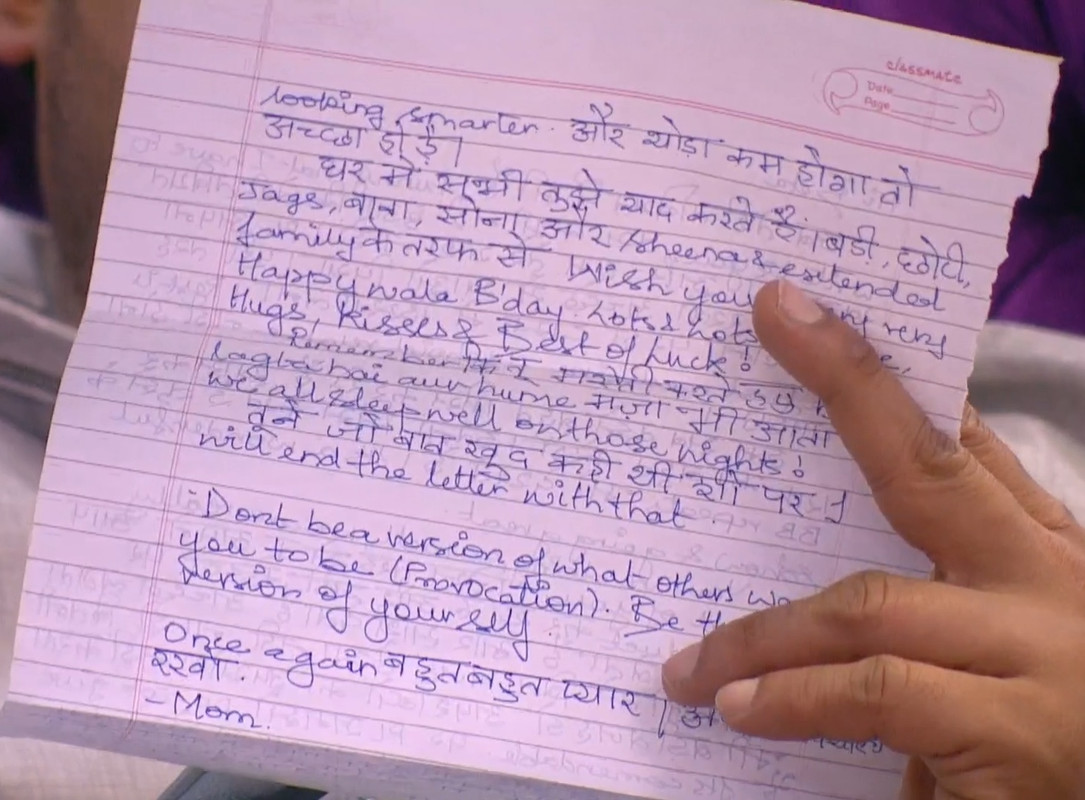 classmate
Date
Page
looking smarter. और थोड़ा कम होगा तो
अच्छा ही है।
घर में सभी तुझे याद करते है। बडी, छोटी,
Jags, बाबा, सोना और Sheena & extended
family के तरफ से Wish you very
Happy wala B'day Lots & Lots
Hugs, Kisses & Best of Luck!
Remember फिर करते
lagta hai aur hume मजा भी आता
we all sleep well on those nights!
तूने जो बात खुद कही थी उसी पर I
will end the letter with that.
Dont be a version of what others
you to be (Provocation). Be
version of yourself.
Once again बहुत बहुत प्यार।
रखो.
- Mom.